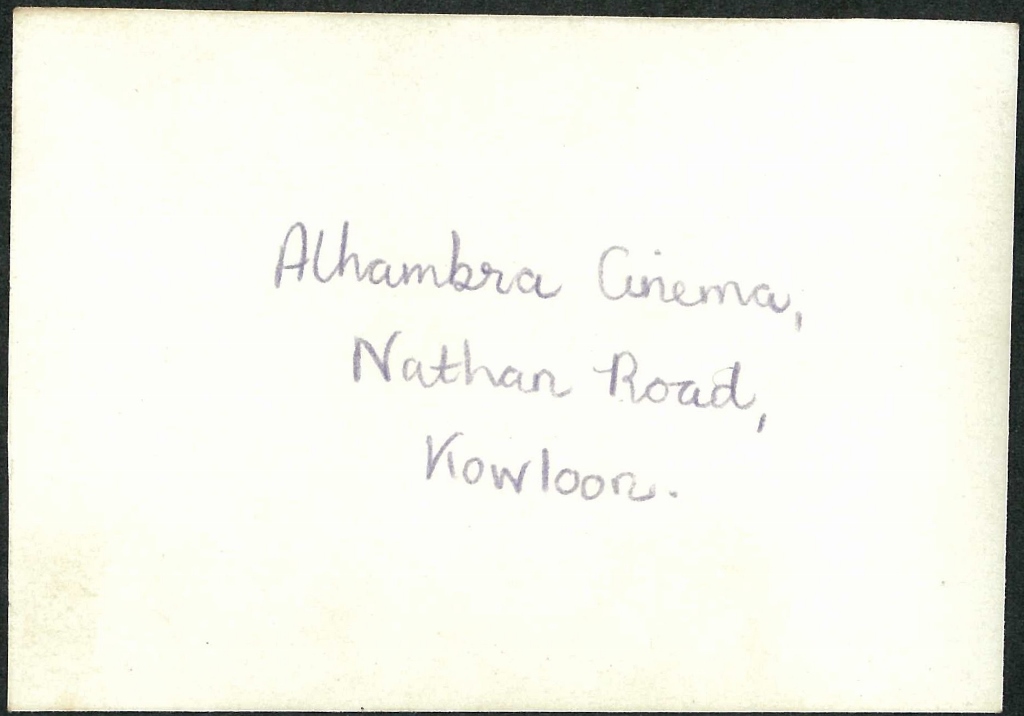 Alhambra Cinema,
Nathan Road,
Kowloon.